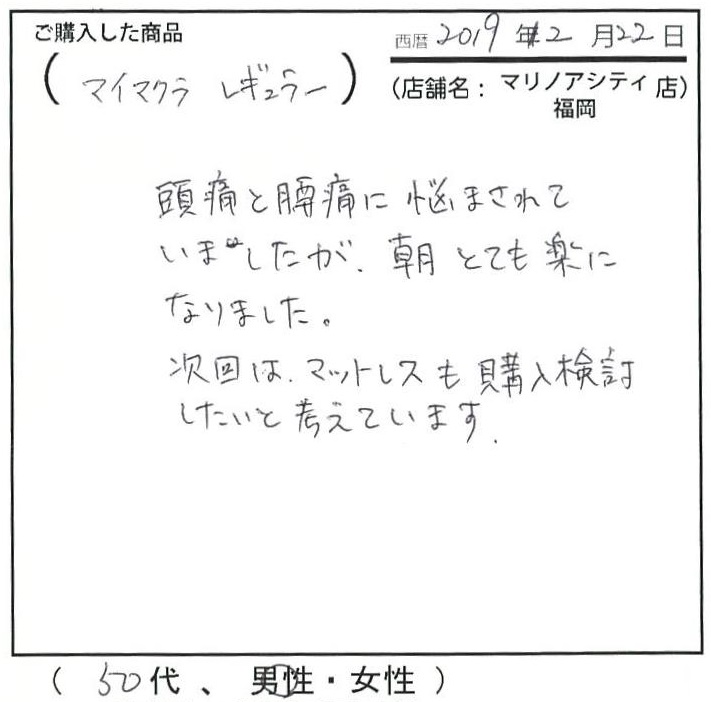 ご購入した商品
(マイマクラ レギュラー)
西暦 2019 年 2 月 22 日
(店舗名： マリノアシティ福岡 店)
頭痛と腰痛に悩まされて
いましたが、朝とても楽に
なりました。
次回は、マットレスも購入検討
したいと考えています.
( 50代 、 男性・女性 )